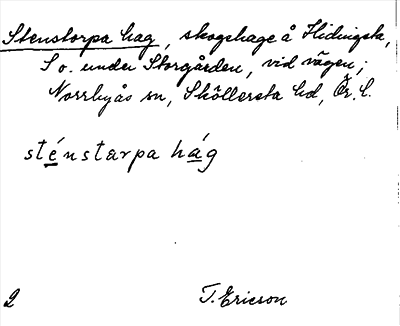 Stenstorpa hag, skogshage å Hidingsta,
S o. under Storgården, vid vägen;
Norrbyås sn, Sköllersta hd, Ör. l.
sténstarpa hág
2
T. Ericson